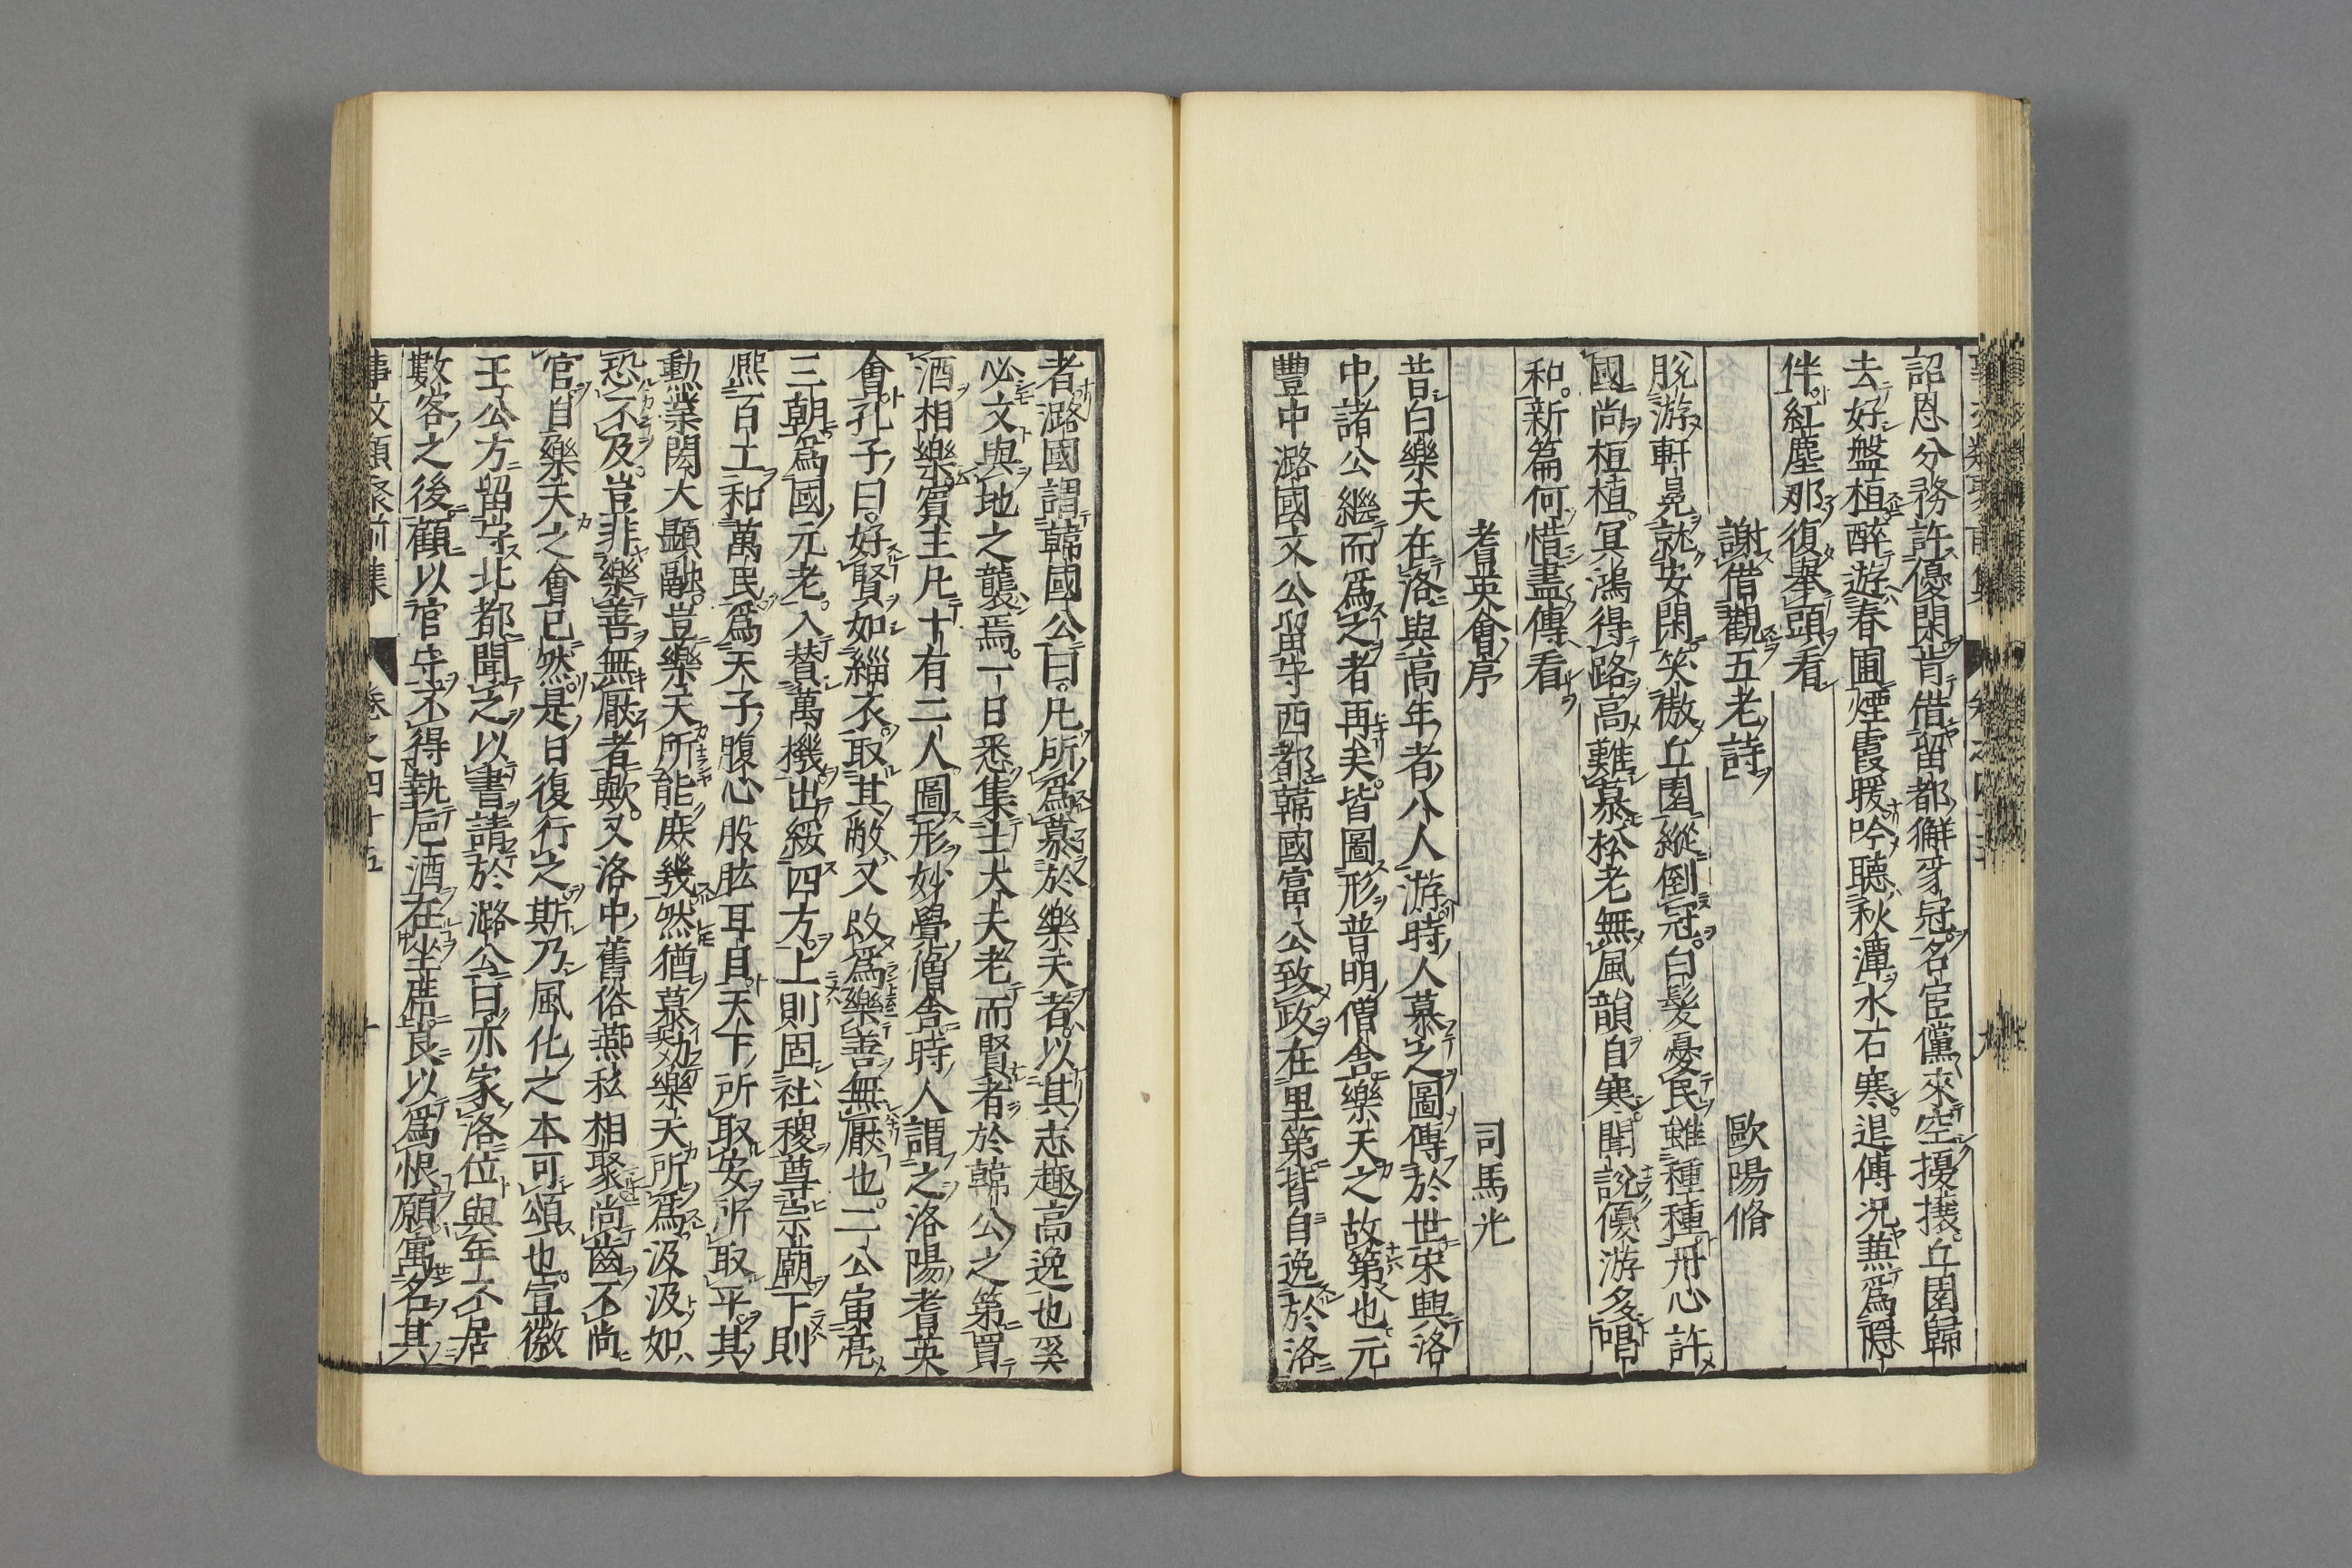 詔恩分務許優閑肯借留都獬豸冠名宦儻來空擾擾丘園歸
去好盤桓醉遊春圃煙霞暖吟聽秋潭水石寒退傅況兼爲隱
伴紅塵那復舉頭看
謝借觀五老詩 歐陽脩
脫游軒冕就安閑笑傲丘園縱倒冠白髮憂民雖種種丹心許
國尚桓桓冥鴻得路高難慕松老無風韻自寒聞說優游多唱
和新篇何惜盡傳看
耆英會序 司馬光
昔白樂天在洛與高年者八人游時人慕之圖傳於世宋興洛
中諸公繼而爲之者再矣皆圖形普明僧舍樂天之故第也元
豐中潞國文公留守西都韓國富公致政在里第皆自逸於洛
者潞國謂韓國公曰凡所爲慕於樂天者以其志趣高逸也奚
必文與地之襲焉一日悉集士大夫老而賢者於韓公之第置
酒相樂賓主凡十有二人圖形妙覺僧舍時人謂之洛陽耆英
會孔子曰好賢如緇衣取其敝又改爲樂善無厭也二公寅亮
三朝爲國元老入贊萬機出綏四方上則固社稷尊宗廟下則
熈百工和萬民爲天子腹心股肱耳目天下所取安所取平其
勳業閎大顯融豈樂天所能庶幾然猶慕效樂天所爲汲汲如
恐不及豈非樂善無厭者歟又洛中舊俗燕私相聚尚齒不尚
官自樂天之會已然是日復行之斯乃風化之本可頌也宣徽
王公方留守北都聞之以書請於潞公曰亦家洛位與年不居
數客之後顧以官守不得執巵酒在坐席良以爲恨願寓名其
事文類聚前集 卷之四十五 十